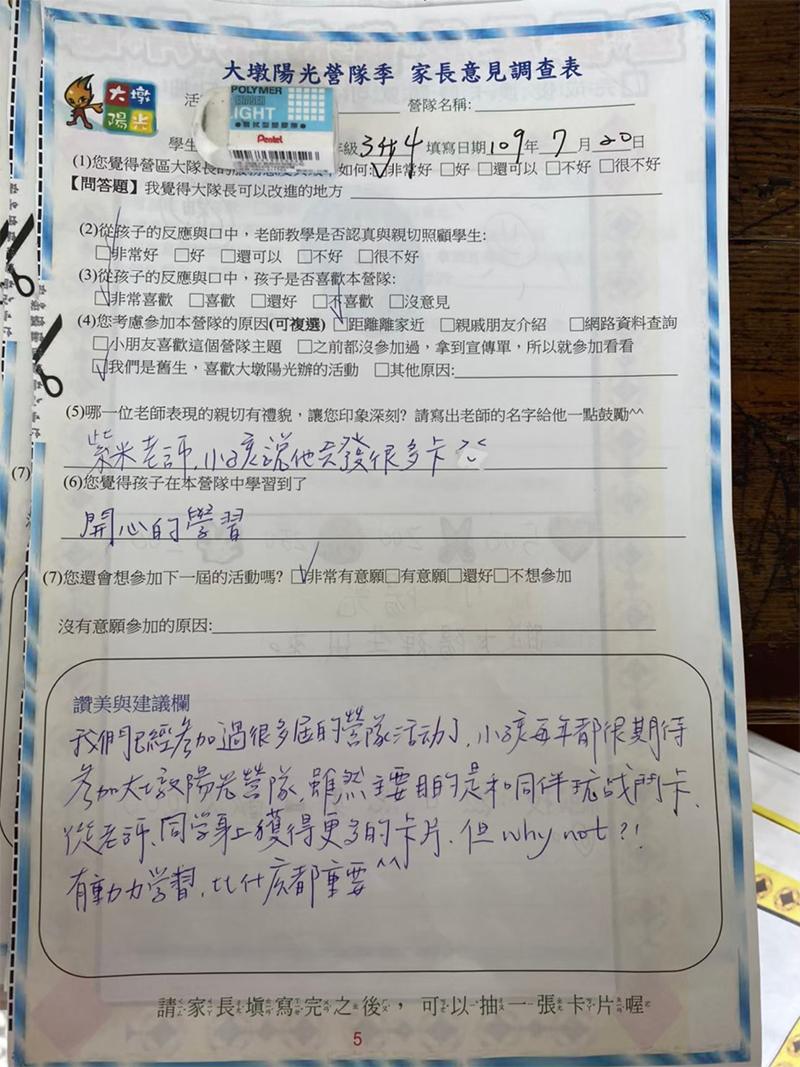 大墩陽光營隊季 家長意見調查表
大墩
陽光
活
營隊名稱:
POLYMER
LIGHT
Pentel
學生
年級 3升4 填寫日期 109年 7 月 20日
(1)您覺得營區大隊長的服務態度 如何:□非常好 □好 □還可以 □不好 □很不好
【問答題】我覺得大隊長可以改進的地方
(2)從孩子的反應與口中，老師教學是否認真與親切照顧學生:
□非常好 □好 □還可以 □不好 □很不好
(3)從孩子的反應與口中，孩子是否喜歡本營隊:
□非常喜歡 □喜歡 □還好 □不喜歡 □沒意見
(4)您考慮參加本營隊的原因(可複選) □距離離家近 □親戚朋友介紹 □網路資料查詢
□小朋友喜歡這個營隊主題 □之前都沒參加過，拿到宣傳單，所以就參加看看
□我們是舊生，喜歡大墩陽光辦的活動 □其他原因:
(5)哪一位老師表現的親切有禮貌，讓您印象深刻? 請寫出老師的名字給他一點鼓勵^^
紫米老師，小孩說他會發很多卡 ^^
(6)您覺得孩子在本營隊中學習到了
開心的學習
(7)
(7)您還會想參加下一屆的活動嗎? □非常有意願□有意願□還好□不想參加
沒有意願參加的原因:
讚美與建議欄
我們已經參加過很多屆的營隊活動了，小孩每年都很期待
參加大墩陽光營隊，雖然主要目的是和同伴玩战鬥卡，
從老師、同學身上獲得更多的卡片，但why not?!
有動力學習，比什庅都重要^^
請家長填寫完之後，可以抽一張卡片喔
5